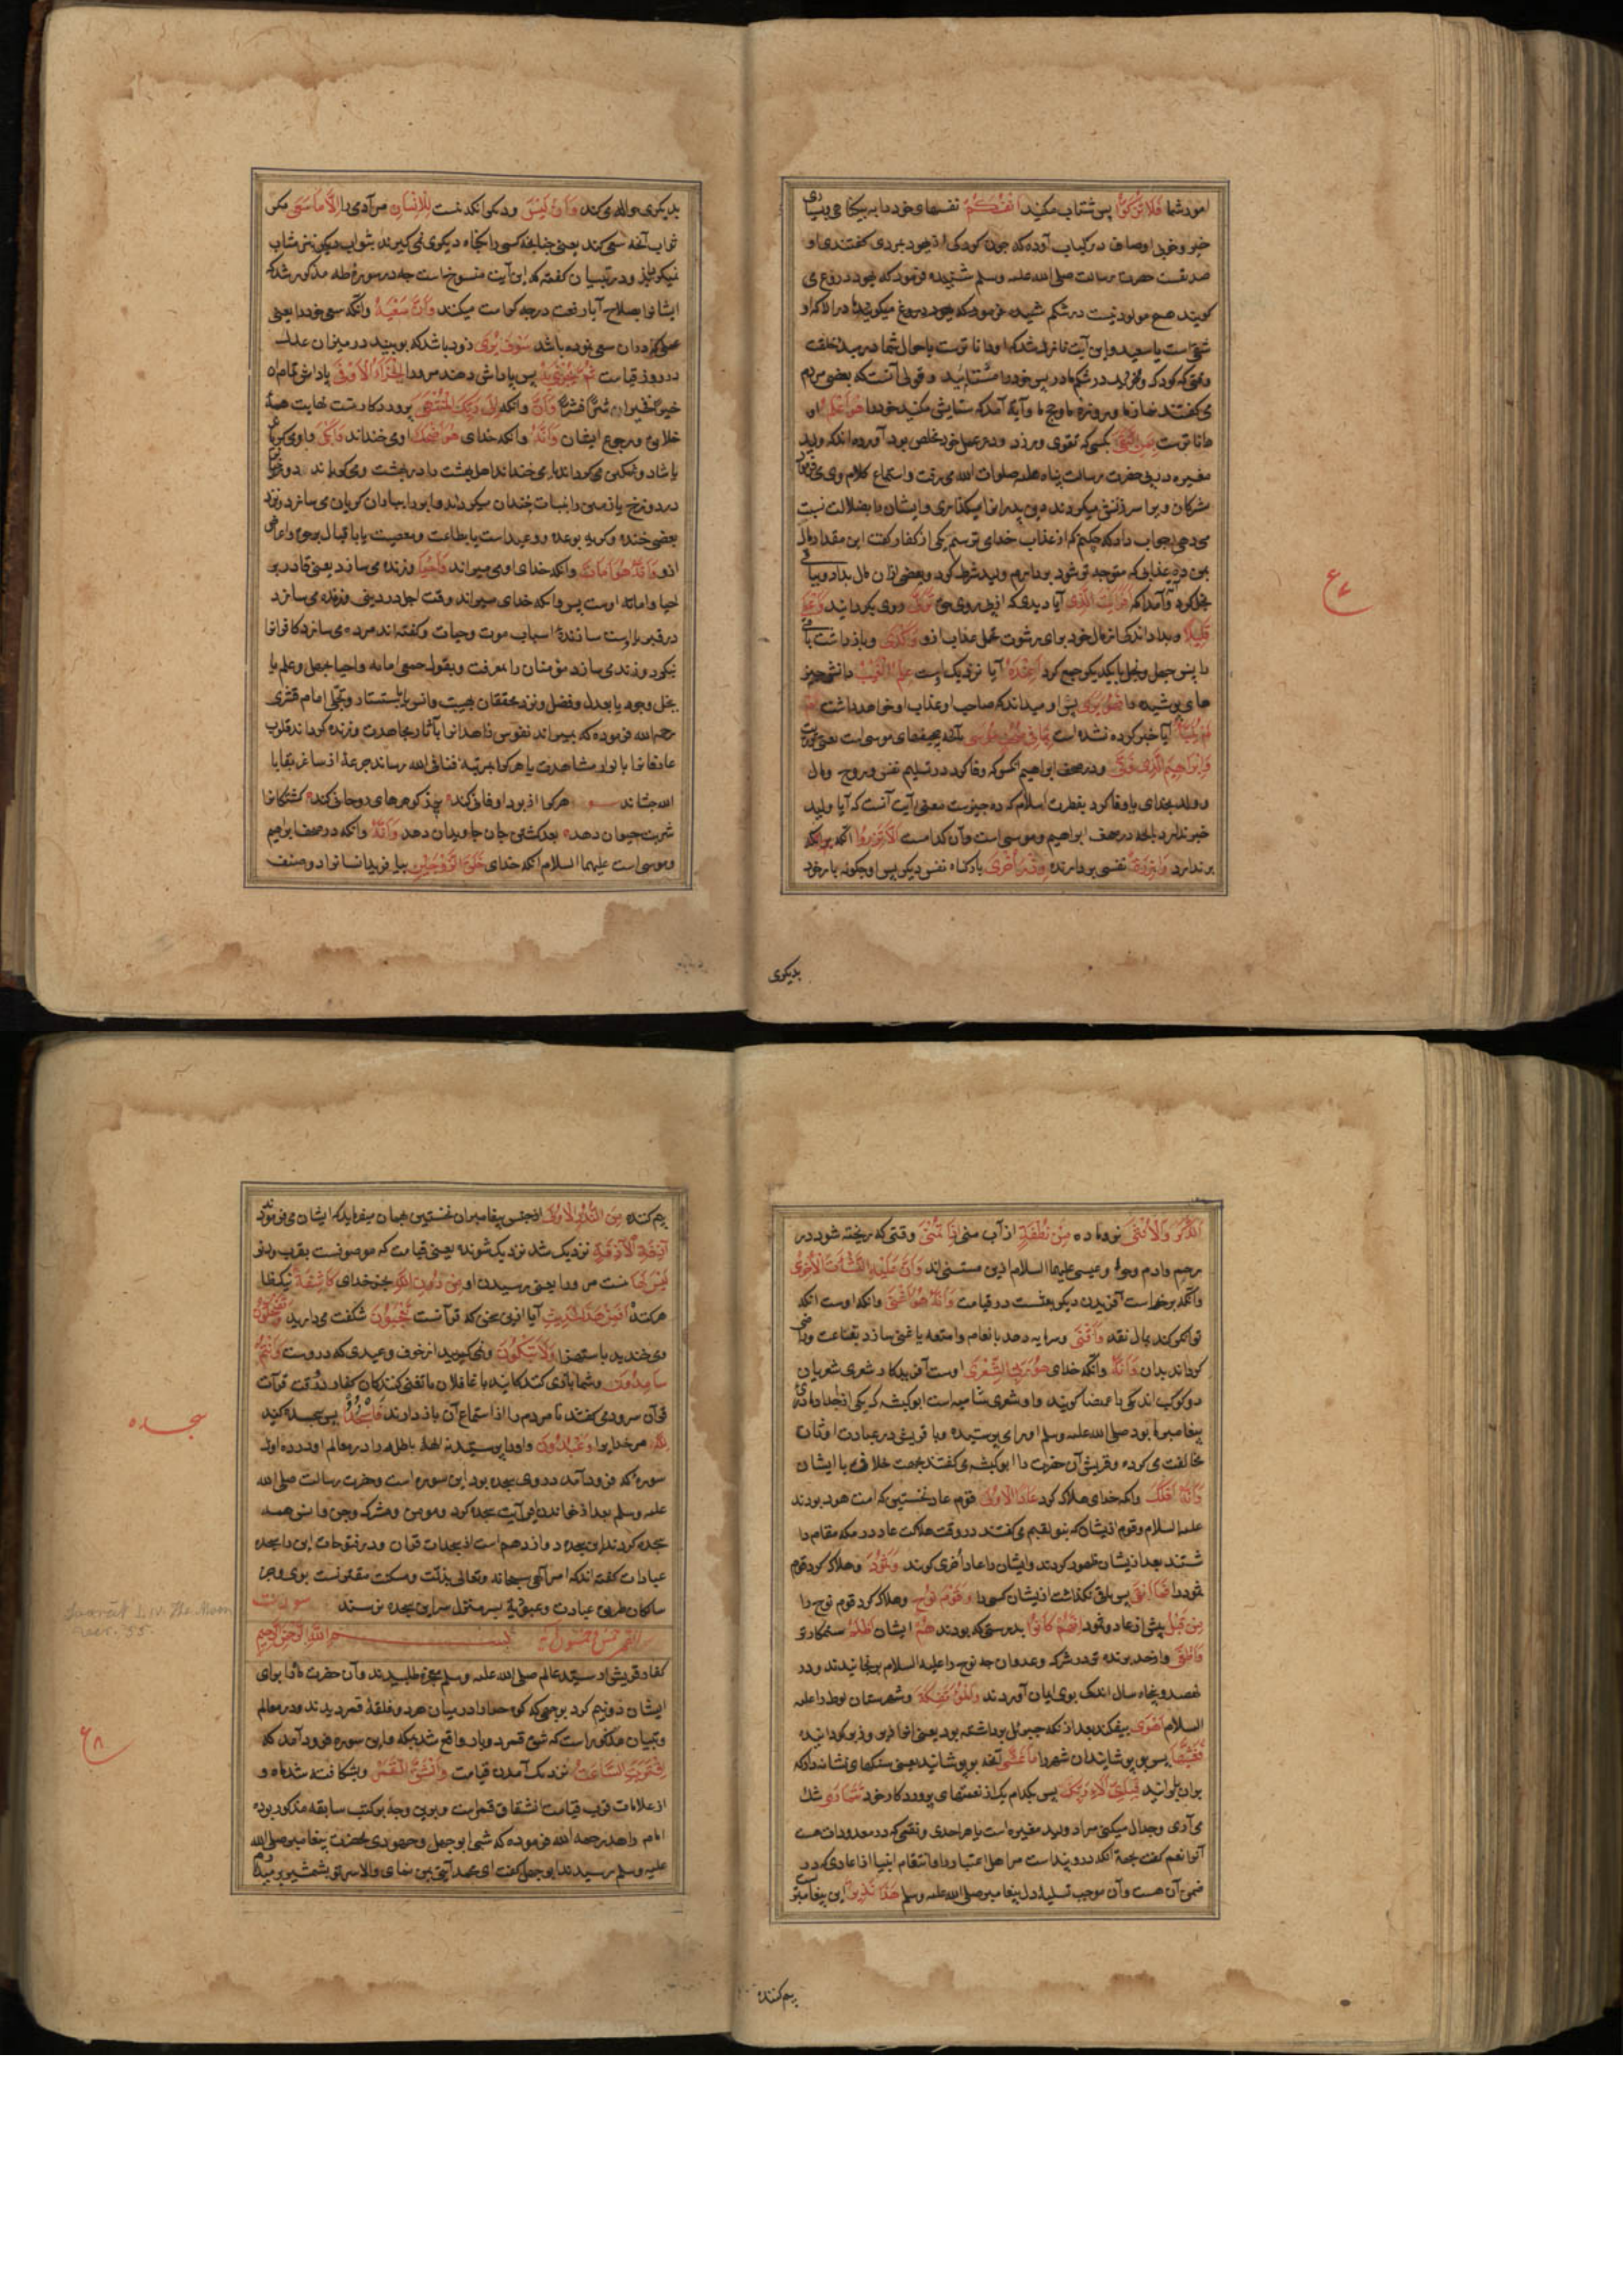 امور شما فَلَا تُزَكُّوا پس ستایش مکنید اَنْفُسَكُمْ نفسهای خود را به بیکناهی و بسیاری
خیر و خوبی اوصاف در کتاب آورده که چون کودکی از جهود بمردی گفتندی او
صدیقست حضرت رسالت صلی الله علیه وسلم شنیده فرمود که یهود دروغ می
گویند هیچ مولود نیست در شکم
شقی است یا سعید و این آیت نازل شد که او داناترست باحوال شما در مبدا خلقت
وقتی که کودک بودید در شکم مادر پس خود را مستایید و قولی آنست که بعضی مردم
می گفتند نماز ما و روزه ما و حج ما و آیة آمد که ستایش مکنید خود را هُوَ اَعْلَمُ او
داناترست بِمَنِ اتَّقٰى بکسی که تقوی ورزد و در عمل خود مخلص بود آورده اند که ولید
مغیره در پی حضرت رسالت پناه علیه صلوات الله می رفت و استماع کلام وی می فرمود
مشرکان ویرا سرزنش میکردند که دین پدران را میکذاری و ایشان را بضلالت نسبت
می دهی جواب داد که چکنم که از عذاب خدای ترسم یکی از کفار گفت این مقدار مال
بمن ده عذابی که متوجه تو شود بردارم ولید شرط کرد و بعضی از آن مال بداد و بباقی
بخل کرد و آمد که اَفَرَاَيْتَ الَّذِى آیا دیدی که از پی روی حق تَوَلّٰى روی بگردانید وَاَعْطٰى
قَلِيْلًا و بداد اندکی از مال خود برای رشوت تحمل عذاب ازو وَاَكْدٰى و باز داشت باقی
را پس جهل و بخل با یکدیکر جمع کرد اَعِنْدَهُ آیا نزدیک اوست عِلْمُ الْغَيْبِ دانش چیز
های پوشیده فَهُوَ يَرٰى پس او میداند که صاحب او عذاب او خواهد داشت اَمْ
لَمْ يُنَبَّأْ آیا خبر کرده نشده است بِمَا فِى صُحُفِ مُوْسٰى بآنچه صحیفهای موسی است یعنی توریت
وَاِبْرَاهِيْمَ الَّذِى وَفّٰى و در صحف ابراهیم آنکسی که وفا کرد در تسلیم نفس و روح و مال
و ولد بخدای یا وفا کرد بفطرت اسلام که ده چیزست معنی آیت آنست که آیا ولید
خبر ندارد بآنچه در صحف ابراهیم و موسی است و آن کدامست اَلَّا تَزِرُ آنکه
بر ندارد وَازِرَةٌ نفسی بردارنده وِزْرَ اُخْرٰى بار کناه نفس دیکر پس او چکونه بار خود
بدیکری
بدیکری حواله می کند وَاَنْ لَيْسَ و دیکر آنکه نیست لِلْاِنْسَانِ مر آدمی را اِلَّا مَا سَعٰى مکر
ثواب آنچه سعی کند یعنی چنانچه کسی را بکناه دیکری نمی کیرند بثواب دیکری نیز مثاب
نمیکرداند و در تبیان گفته که این آیت منسوخ است چه در سوره طه مذکور شد که
ایشانرا بصلاح آبا رفعت درجه کرامت میکند وَاَنَّ سَعْيَهُ و آنکه سعی خود را یعنی
عملی که در آن سعی نموده باشد سَوْفَ يُرٰى زود باشد که بوبینند در میزان عدل
در روز قیامت ثُمَّ يُجْزٰيهُ پس پاداش دهند مرورا الْجَزَاءَ الْاَوْفٰى پاداش تمام
خیرًا فخیر وان شرًّا فشرّ وَاَنَّ و آنکه اِلٰى رَبِّكَ الْمُنْتَهٰى بپروردکار تست نهایت همه
خلایق و مرجع ایشان وَاَنَّهُ و آنکه خدای هُوَ اَضْحَكَ اوی خنداند وَاَبْكٰى و اوی کریاند
یا شاد و غمکین می کرداند یا می خنداند اهل بهشت را در بهشت و می کریاند دوزخیان را
در دوزخ یا زمین را بنبات خندان میکرداند و ابر را بباران کریان می سازد و نزد
بعضی خنده و کریه بوعده و وعیدست یا بطاعت و معصیت یا باقبال بحق و اعراض
ازو وَاَنَّهُ هُوَ اَمَاتَ و آنکه خدای اوی میراند وَاَحْيَا و زنده می سازد یعنی قادر بر
احیا و اماته اوست پس و آنکه خدای میراند وقت اجل در دنیا و زنده می سازد
در قبر یا اوست سازندهٔ اسباب موت و حیات و گفته اند مرده می سازد کافرانرا
بنکره و زنده می سازد مؤمنان را بمعرفت و بقول جمعی اماته و احیا بجهل و علم یا
بخل وجود یا بعدل و فضل و نزد محققان بهیبت و انس یا باستتار و تجلی امام قشیری
رحمه الله فرموده که بمیراند نفوس زاهدانرا بآثار مجاهدت و زنده کرداند قلوب
عارفانرا بانوار مشاهدت یا هرکرا بمرتبهٔ فنا فی الله رساند جرعهٔ از ساغر بقا با
الله چشاند هرکرا از بود او فانی کند پر ز کوهرهای روحانی کند کشتکانرا
شربت حیوان دهد بعد کشتن جان جاویدان دهد وَاَنَّهُ و آنکه در صحف ابراهیم
و موسی است علیهما السلام آنکه خدای خَلَقَ الزَّوْجَيْنِ بیافرید انسانرا دو صنف
ع ٧
الذَّكَرَ وَالْاُنْثٰى نر و ماده مِنْ نُطْفَةٍ از آب منی اِذَا تُمْنٰى وقتی که ریخته شود در
رحم و آدم و حوا و عیسی علیهما السلام ازین مستثنی اند وَاَنَّ عَلَيْهِ النَّشْاَةَ الْاُخْرٰى
و آنکه بر خداست آفریدن دیکر بعثت در قیامت وَاَنَّهُ هُوَ اَغْنٰى و آنکه اوست آنکه
توانکر کند بمال نقد وَاَقْنٰى و سرمایه دهد بانعام و امتعه یا غنی سازد بقناعت و راضی
کرداند بدان وَاَنَّهُ و آنکه خدای هُوَ رَبُّ الشِّعْرٰى اوست آفریدکار شعری شعریان
دو کوکب اند یکی را غمیصا گویند و او شعری شامیه است ابوکبشه که یکی از اجداد مادری
پیغامبر ما بود صلی الله علیه وسلم او را می پرستیده و با قریش در عبادت اوثان
مخالفت می کرده و قریش آن حضرت را ابوکبشه می گفتند بجهت خلاف با ایشان
وَاَنَّهُ اَهْلَكَ و آنکه خدای هلاک کرد عَادًا الْاُوْلٰى قوم عاد نخستین که امت هود بودند
علیه السلام و قوم از ایشان که بنو لقیم می گفتند در وقت هلاکت عاد در مکه مقام
داشتند بعد ازیشان ظهور کردند و ایشان را عاد اخری گویند وَثَمُوْدَ و هلاک کرد قوم
ثمود را فَمَا اَبْقٰى پس باقی نکذاشت ازیشان کسی را وَقَوْمَ نُوْحٍ و هلاک کرد قوم نوح را
مِنْ قَبْلُ پیش از عاد و ثمود اِنَّهُمْ كَانُوْا بدرستی که بودند هُمْ ایشان اَظْلَمَ ستمکارتر
وَاَطْغٰى و از حد برنده تر در شرک و عدوان چه نوح را علیه السلام برنجانیدند و در
نهصد و پنجاه سال اندک بوی ایمان آوردند وَالْمُؤْتَفِكَةَ و شهرستان لوط را علیه
السلام اَهْوٰى بیفکند بعد از آنکه جبرئیل برداشته بود یعنی آنرا زیر و زبر کردانیده
فَغَشّٰيهَا پس بپوشانید آن شهر را مَا غَشّٰى آنچه بپوشانید یعنی سنکهای نشانه دار که
بر آن بارانید فَبِاَىِّ اٰلَاءِ رَبِّكَ پس بکدام یک از نعمتهای پروردکار خود تَتَمَارٰى شک
می آری و جدال میکنی مراد ولید مغیره است یا هر احدی و نقمی که در معدودات هست
آنرا نعم گفت بجهة آنکه در و پنداست مر اهل اعتبار را و انتقام انبیا از اعادی که در
ضمن آن هست و آن موجب تسلیهٔ دل پیغامبر صلی الله علیه وسلم هٰذَا نَذِيْرٌ این پیغامبر
بیم کننده
بیم کننده مِنَ النُّذُرِ الْاُوْلٰى از جنس پیغامبران نخستین همان میفرماید که ایشان می فرمودند
اَزِفَتِ الْاٰزِفَةُ نزدیک شد نزدیک شونده یعنی قیامت که موصوفست بقرب و دنو
لَيْسَ لَهَا نیست مر ورا یعنی رسیدن او مِنْ دُوْنِ اللّٰهِ بجز خدای كَاشِفَةٌ
اَفَمِنْ هٰذَا الْحَدِيْثِ آیا ازین سخن که قرآنست تَعْجَبُوْنَ شکفت می دارید وَتَضْحَكُوْنَ
و می خندید باستهزا وَلَا تَبْكُوْنَ و نمی کریید از خوف وعیدی که دروست وَاَنْتُمْ
سَامِدُوْنَ و شما بازی کنندکانید یا غافلان یا تغنی کنندکان کفار در وقت قرآت
قرآن سرود می گفتند تا مردم را از استماع آن باز دارند فَاسْجُدُوْا پس سجده کنید
لِلّٰهِ مر خدایرا وَاعْبُدُوْا و او را پرستید نه الهه باطله را در معالم آورده اول
سوره که فرود آمد در وی سجده بود این سوره است و حضرت رسالت صلی الله
علیه وسلم بعد از خواندن این آیت سجده کرد و مؤمن و مشرک و جن و انس همه
سجده کردند این سجده دوازدهم است از سجدات قرآن و در فتوحات این را سجده
عبادات گفته اند که امر الهی سبحانه وتعالی بذلت و مسکنت مقرونست بوی و جز
سالکان طریق عبادت و عبودیت بسر منزل سر این سجده نرسند سورت
القمر خمس و خمسون آیة بسم الله الرحمن الرحیم
کفار قریش از سید عالم صلی الله علیه وسلم معجزه طلبیدند و آن حضرت ماه را برای
ایشان دونیم کرد بوجهی که کوه حرا را در میان هر دو فلقهٔ قمر دیدند و در معالم
و تبیان مذکورست که شق قمر دو بار واقع شد بمکه و این سوره فرود آمد که
اِقْتَرَبَتِ السَّاعَةُ نزدیک آمد قیامت وَانْشَقَّ الْقَمَرُ و بشکافته شد ماه و
از علامات قرب قیامت انشقاق قمرست و برین وجه در کتب سابقه مذکور بوده
امام زاهد رحمه الله فرموده که شبی ابوجهل و جهودی بحضرت پیغامبر صلی الله
علیه وسلم رسیدند ابوجهل گفت ای محمد آیتی بمن نمای والا سر تو بشمشیر بر میدارم
سجده
ع ٨
Soorat LIV. The Moon
ver. 55.